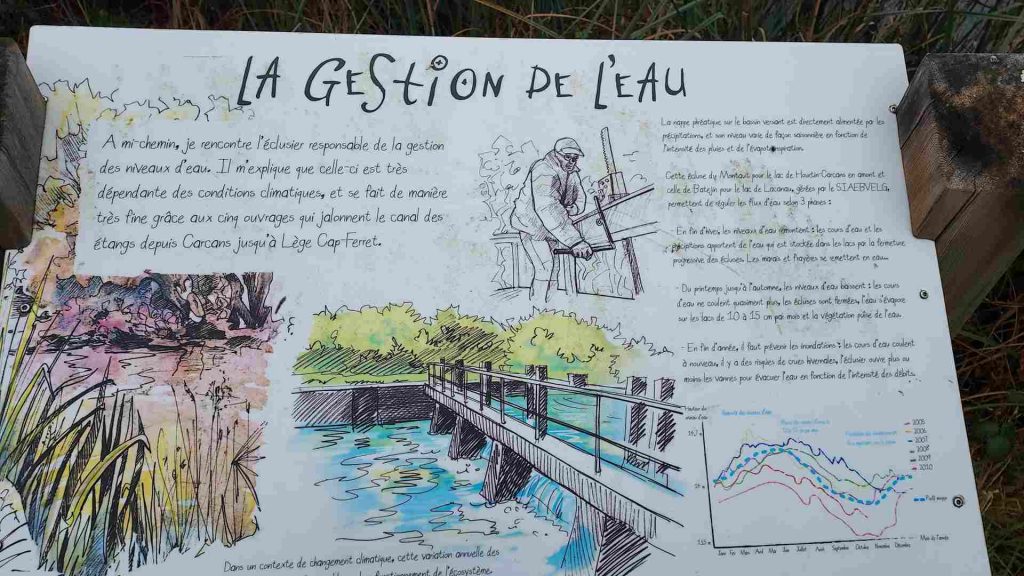 LA GESTION DE L'EAU
A mi-chemin, je rencontre l'éclusier responsable de la gestion
des niveaux d'eau. Il m'explique que celle-ci est très
dépendante des conditions climatiques, et se fait de manière
très fine grâce aux cinq ouvrages qui jalonnent le canal des
étangs depuis Carcans jusqu'à Lège Cap-Ferret.
La nappe phréatique sur le bassin versant est directement alimentée par les
précipitations, et son niveau varie de façon saisonnière en fonction de
l'intensité des pluies et de l'évapotranspiration.
Cette écluse dy Montaut pour le lac de Hourtin-Carcans en amont et
celle de Batejin pour le lac de Lacanau, gérées par le SIAEBVELG,
permettent de réguler les flux d'eau selon 3 phases :
- En fin d'hiver, les niveaux d'eau remontent : les cours d'eau et les
précipitations apportent de l'eau qui est stockée dans les lacs par la fermeture
progressive des écluses. Les marais et frayères se remettent en eau.
- Du printemps jusqu'à l'automne, les niveaux d'eau baissent : les cours
d'eau ne coulent quasiment plus, les écluses sont fermées, l'eau s'évapore
sur les lacs de 10 à 15 cm par mois et la végétation puise de l'eau.
- En fin d'année, il faut prévenir les inondations : les cours d'eau coulent
à nouveau, il y a des risques de crues hivernales, l'éclusier ouvre plus ou
moins les vannes pour évacuer l'eau en fonction de l'intensité des débits.
Hauteur du
niveau d'eau
2005
2006
2007
2008
2009
2010
Profil moyen
Janv Fev Mars Avril Mai Juin Juillet Août Septembre Octobre Novembre Décembre
Mois de l'année
Dans un contexte de changement climatique, cette variation annuelle des
fonctionnement de l'écosystème.